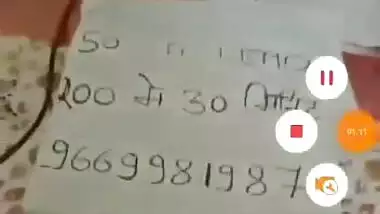 50
200 में 30 मिनट
9669981987
01:11